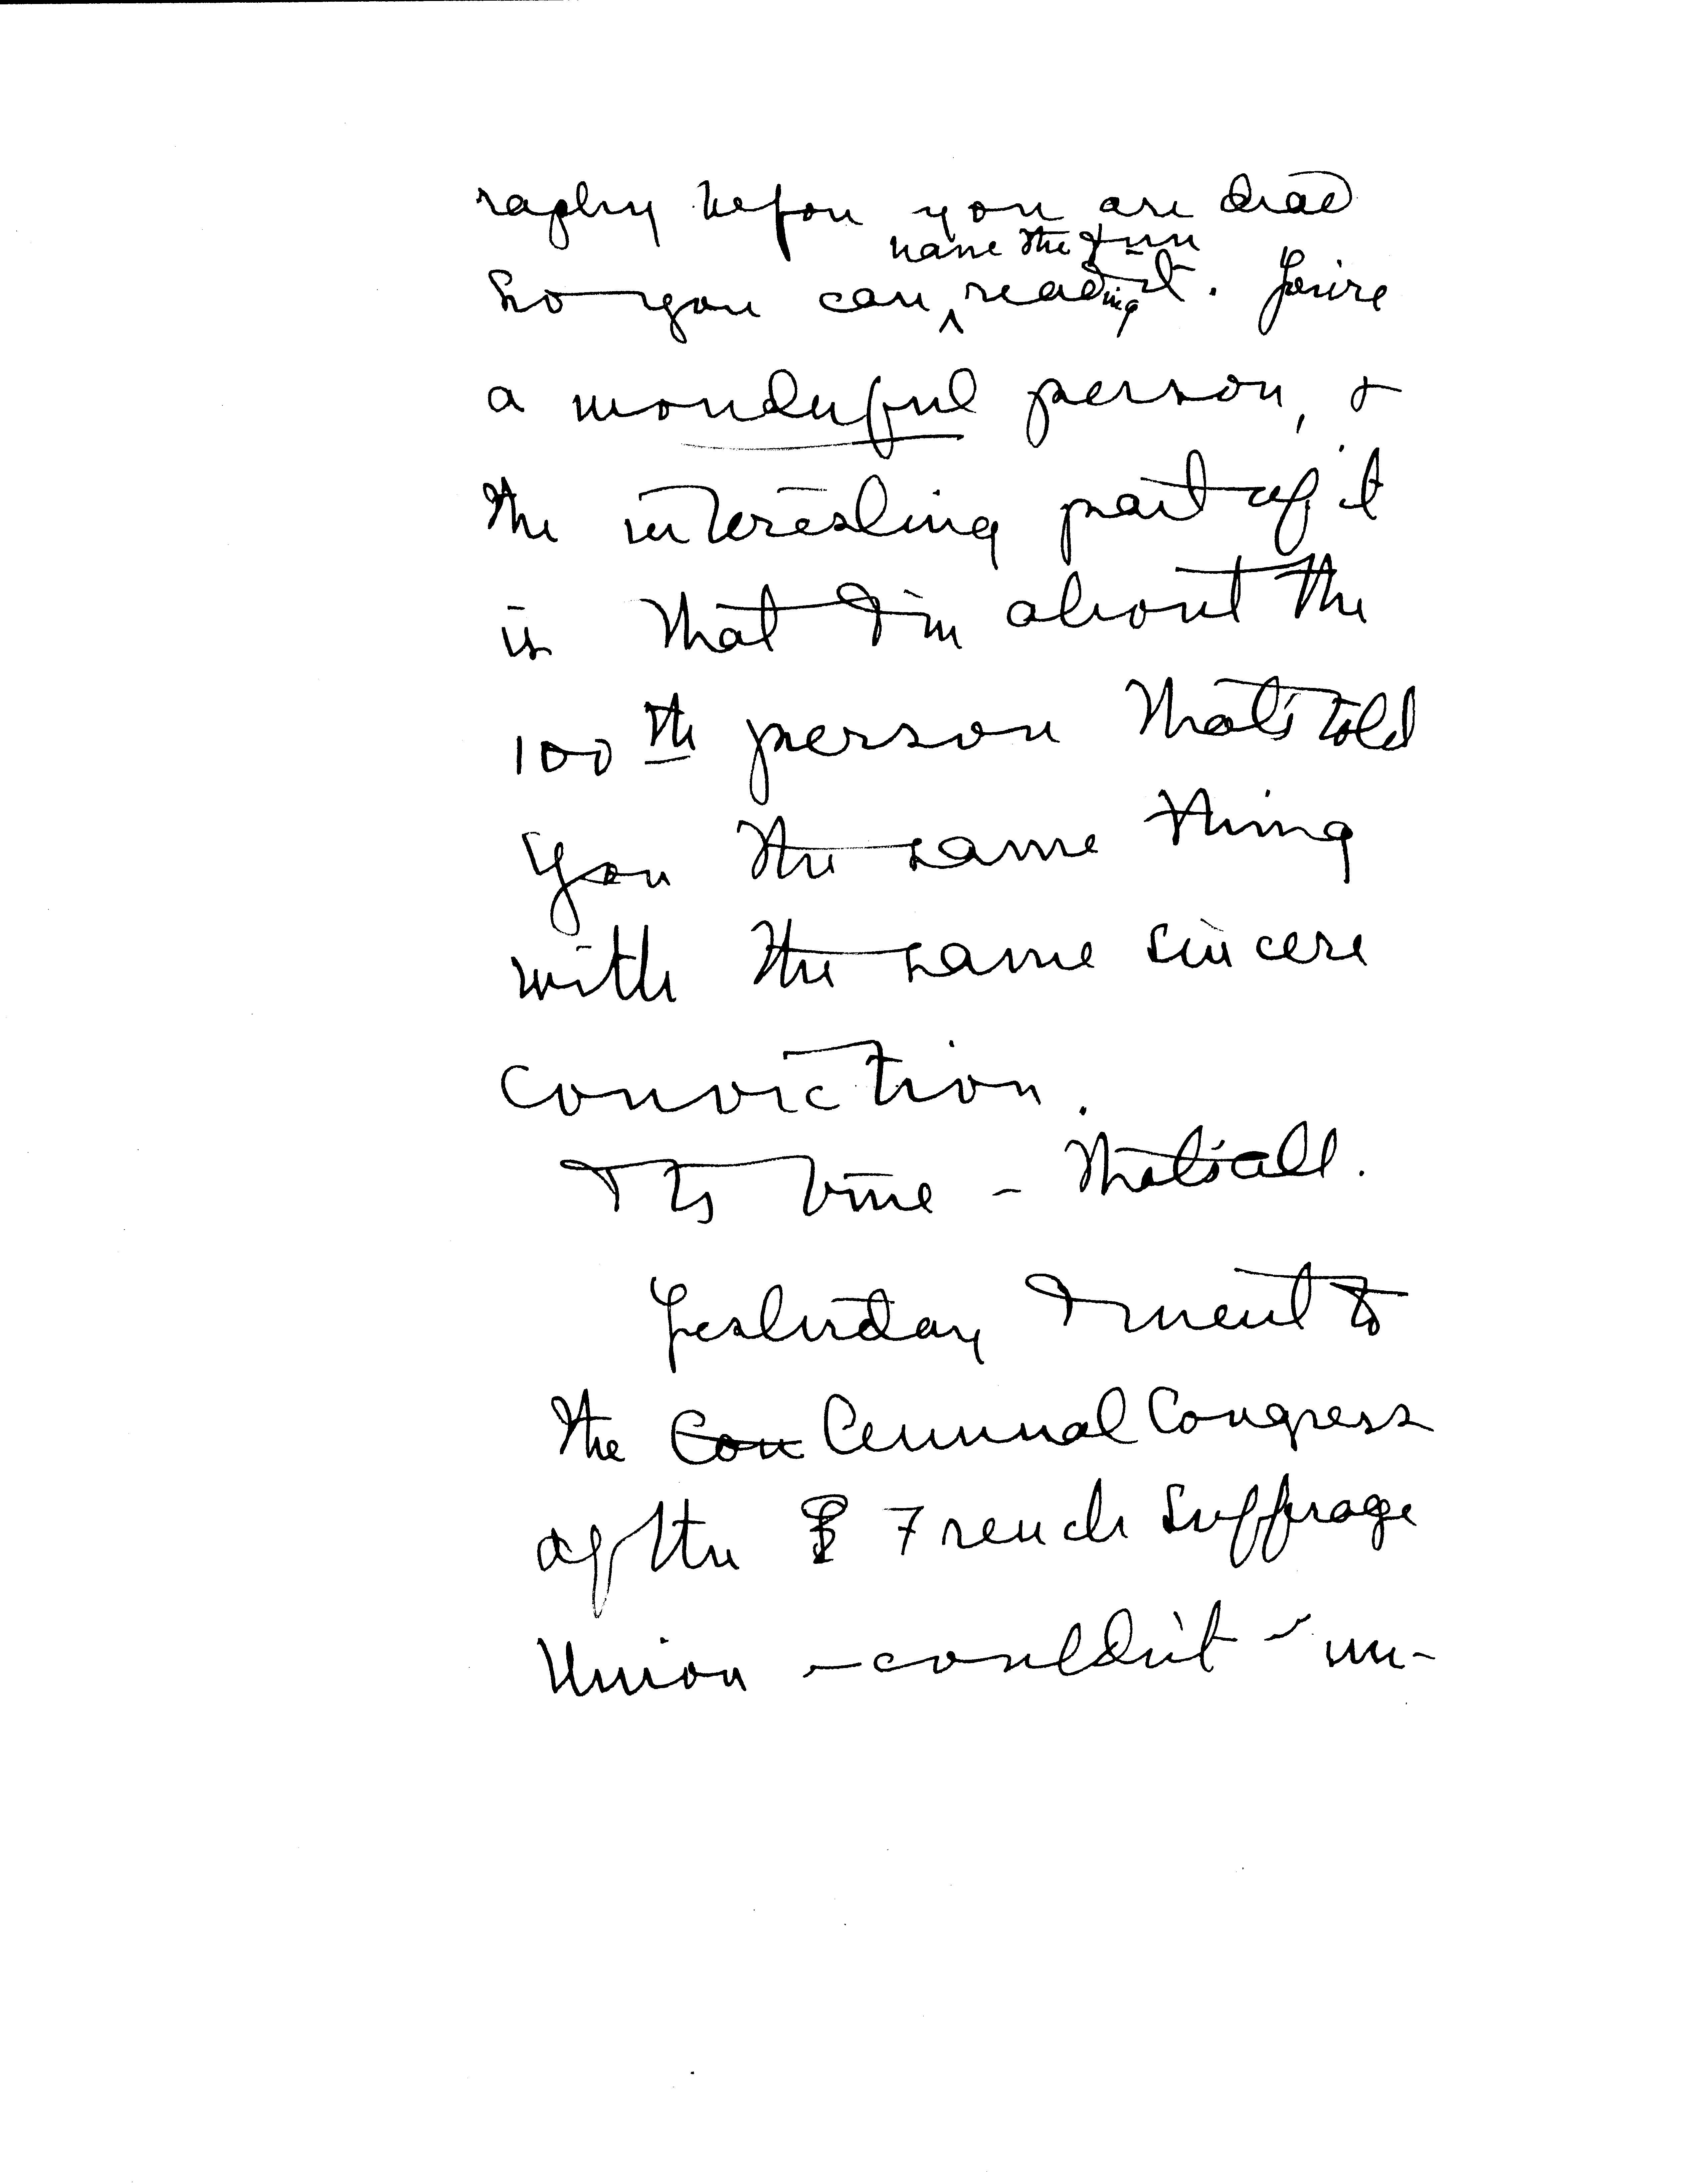 raphy before you are dead
have the fun
so you can ^ reading it. You're
a wonderful person, &
the interesting part of it
is that I'm about the
100th person that's told
you the same thing
with the same sincere
conviction.
It's true - that's all.
Yesterday I went to
the Con Cennnal Congress
of the F French Suffrage
Union - couldn't - un-